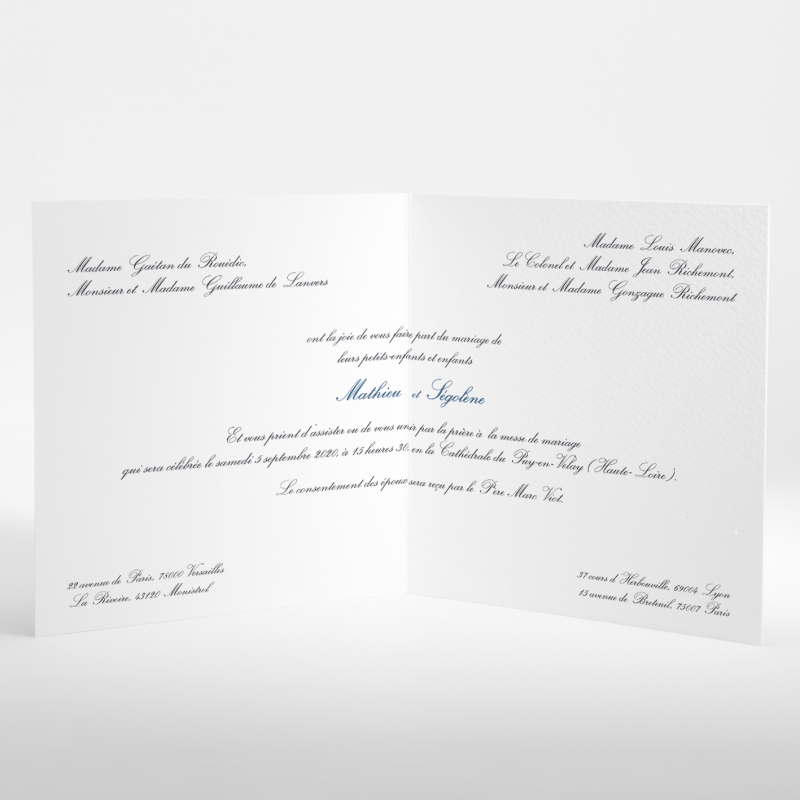 Madame Gaëtan du Rouëdic,
Monsieur et Madame Guillaume de Lanvers
Madame Louis Manovec,
Le Colonel et Madame Jean Richemont,
Monsieur et Madame Gonzague Richemont
ont la joie de vous faire part du mariage de
leurs petits-enfants et enfants
Mathieu et Ségolène
Et vous prient d'assister ou de vous unir par la prière à la messe de mariage
qui sera célébrée le samedi 5 septembre 2020, à 15 heures 30, en la Cathédrale du Puy-en-Velay (Haute-Loire).
Le consentement des époux sera reçu par le Père Marc Viot.
22 avenue de Paris, 78000 Versailles
La Rivoire, 43120 Monistrol
37 cours d'Herbouville, 69004 Lyon
15 avenue de Breteuil, 75007 Paris